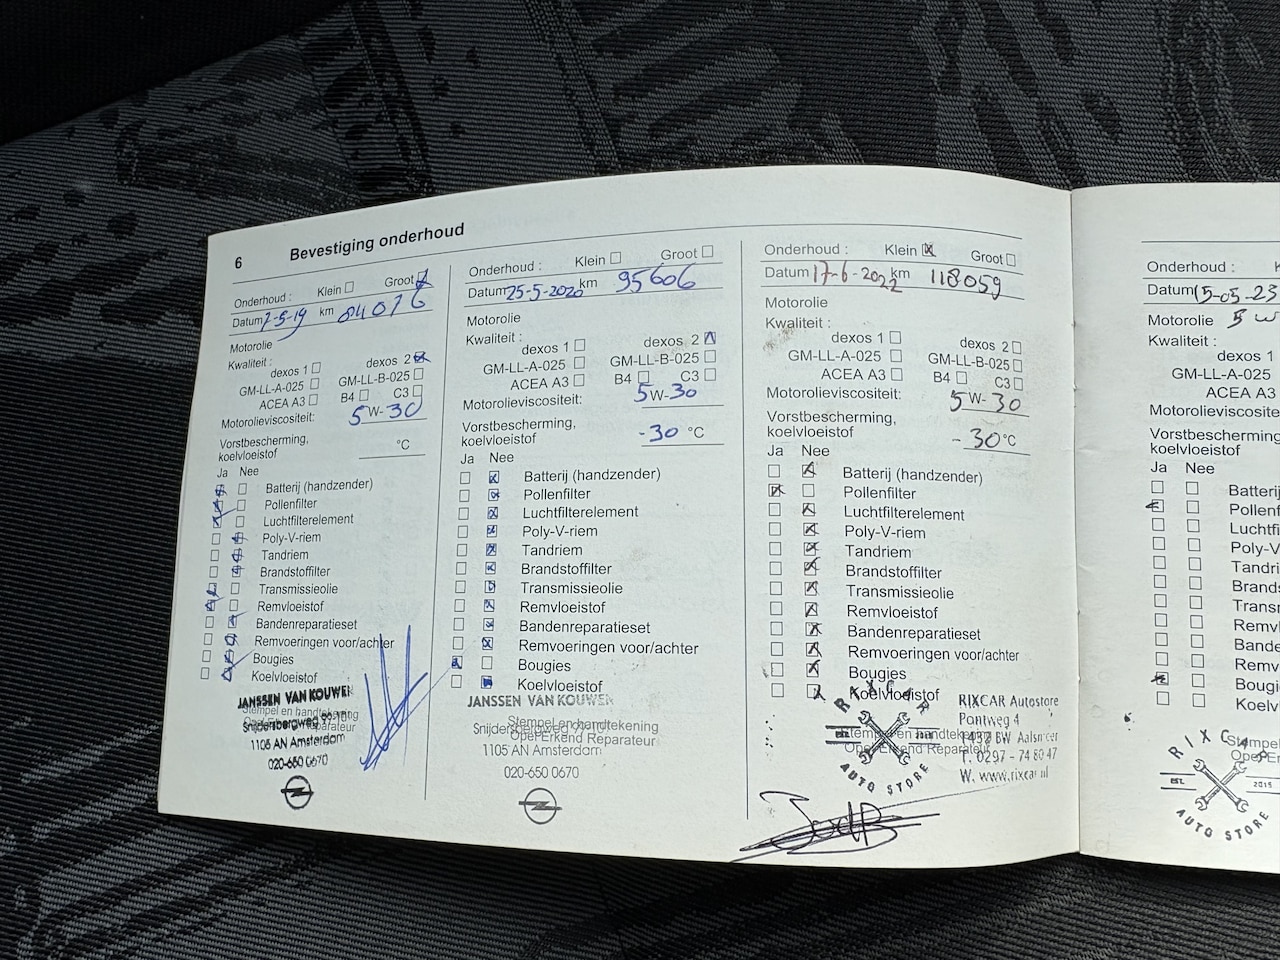 6 Bevestiging onderhoud
Onderhoud : Klein Groot
Datum 7-5-19 km 84076
Motorolie
Kwaliteit :
dexos 1 dexos 2
GM-LL-A-025 GM-LL-B-025
ACEA A3 B4 C3
Motorolieviscositeit: 5W-30
Vorstbescherming,
koelvloeistof °C
Ja Nee
Batterij (handzender)
Pollenfilter
Luchtfilterelement
Poly-V-riem
Tandriem
Brandstoffilter
Transmissieolie
Remvloeistof
Bandenreparatieset
Remvoeringen voor/achter
Bougies
Koelvloeistof
JANSSEN VAN KOUWEN
Stempel en handtekening
Snijdersbergweg
Reparateur
1105 AN Amsterdam
020-650 0670
Onderhoud : Klein Groot
Datum 25-5-2020 km 95606
Motorolie
Kwaliteit :
dexos 1 dexos 2
GM-LL-A-025 GM-LL-B-025
ACEA A3 B4 C3
Motorolieviscositeit: 5W-30
Vorstbescherming,
koelvloeistof -30 °C
Ja Nee
Batterij (handzender)
Pollenfilter
Luchtfilterelement
Poly-V-riem
Tandriem
Brandstoffilter
Transmissieolie
Remvloeistof
Bandenreparatieset
Remvoeringen voor/achter
Bougies
Koelvloeistof
JANSSEN VAN KOUWEN
Stempel en handtekening
Snijdersbergweg
Opel Erkend Reparateur
1105 AN Amsterdam
020-650 0670
Onderhoud : Klein Groot
Datum 17-6-2022 km 118059
Motorolie
Kwaliteit :
dexos 1 dexos 2
GM-LL-A-025 GM-LL-B-025
ACEA A3 B4 C3
Motorolieviscositeit: 5W-30
Vorstbescherming,
koelvloeistof -30°C
Ja Nee
Batterij (handzender)
Pollenfilter
Luchtfilterelement
Poly-V-riem
Tandriem
Brandstoffilter
Transmissieolie
Remvloeistof
Bandenreparatieset
Remvoeringen voor/achter
Bougies
Koelvloeistof
RIXCAR
Stempel en handtekening
Opel Erkend Reparateur
AUTO STORE
RIXCAR Autostore
Pontweg 4
1432 BW Aalsmeer
T. 0297 - 74 80 47
W. www.rixcar.nl
Onderhoud : K
Datum 15-05-23
Motorolie 5 W
Kwaliteit :
dexos 1
GM-LL-A-025
ACEA A3
Motorolieviscositei
Vorstbescherming
koelvloeistof
Ja Nee
Batteri
Pollenf
Luchtfi
Poly-V
Tandri
Brands
Trans
Remvl
Bande
Remv
Bougi
Koelv
RIXCAR
Stempel
Opel E
EST. 2015
AUTO STORE